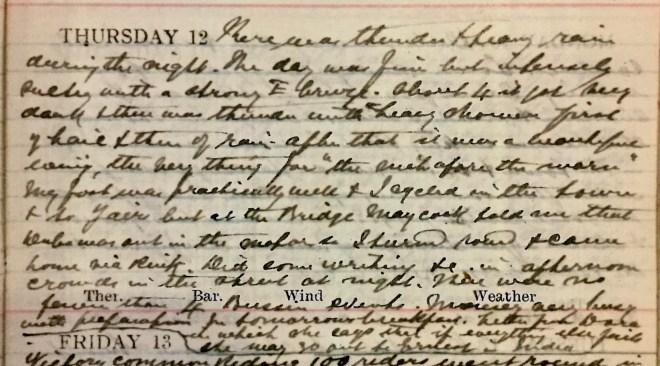 THURSDAY 12 There was thunder & heavy rain
during the night. The day was fine but intensely
sultry with a strong E breeze. About 4 it got very
dark & there was thunder with heavy showers first
of hail & then of rain. After that it was a beautiful
evening, the very thing for "the night afore the morn"
My foot was practically well & I cycled in the town
& to Fairs but at the Bridge Maycock told me that
was out in the motor so I turned round & came
home via Rink. Did some writing &c in afternoon
crowds in the street at night. There were no
Ther. Bar. Wind Weather
fewer than 4 events. busy
with preparation for tomorrow's breakfast. Letter from
in which she says that if everything else fails
FRIDAY 13 she may go out to in India
Common Riding 100 riders went round in